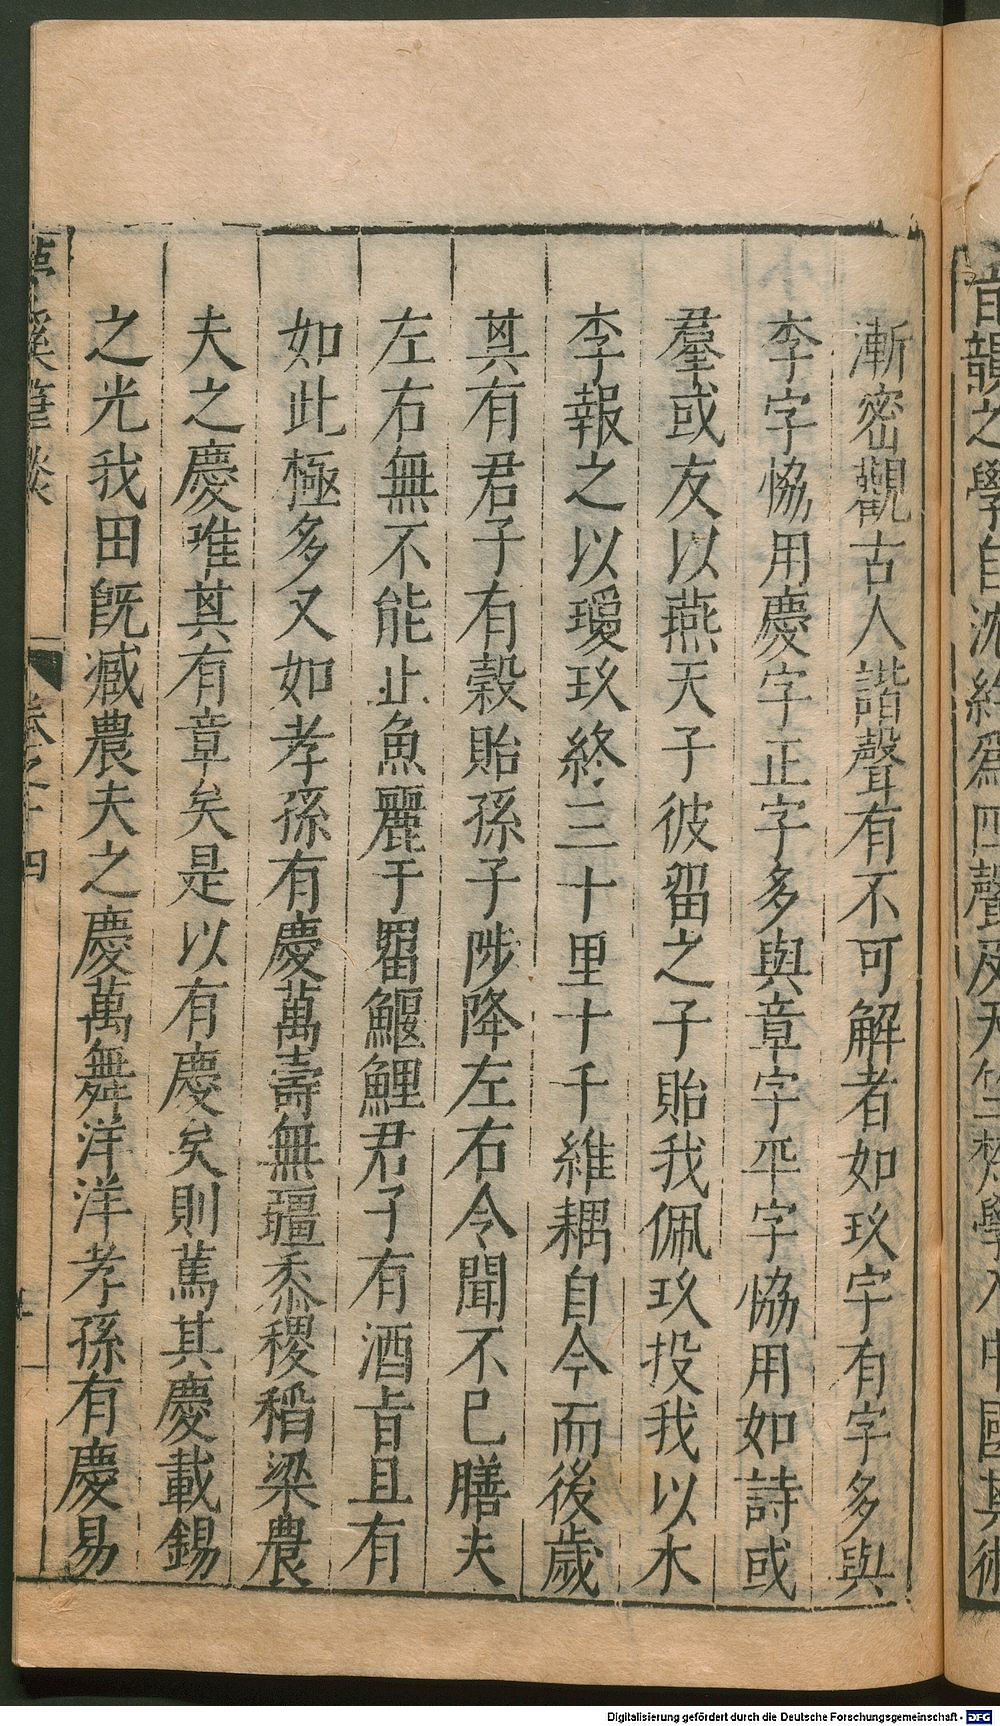 音韻之學自沈約爲四聲及天竺梵學入中國其術
漸密觀古人諧聲有不可解者如玖字有字多與
李字恊用慶字正字多與章字平字恊用如詩或
羣或友以燕天子彼留之子貽我佩玖投我以木
李報之以瓊玖終三十里十千維耦自今而後歲
其有君子有穀貽孫子陟降左右令聞不已膳夫
左右無不能止魚麗于罶鰋鯉君子有酒旨且有
如此極多又如孝孫有慶萬壽無疆黍稷稻粱農
夫之慶唯其有章矣是以有慶矣則篤其慶載錫
之光我田既臧農夫之慶萬舞洋洋孝孫有慶易
夢溪筆談
卷之十四
Digitalisierung gefördert durch die Deutsche Forschungsgemeinschaft - DFG